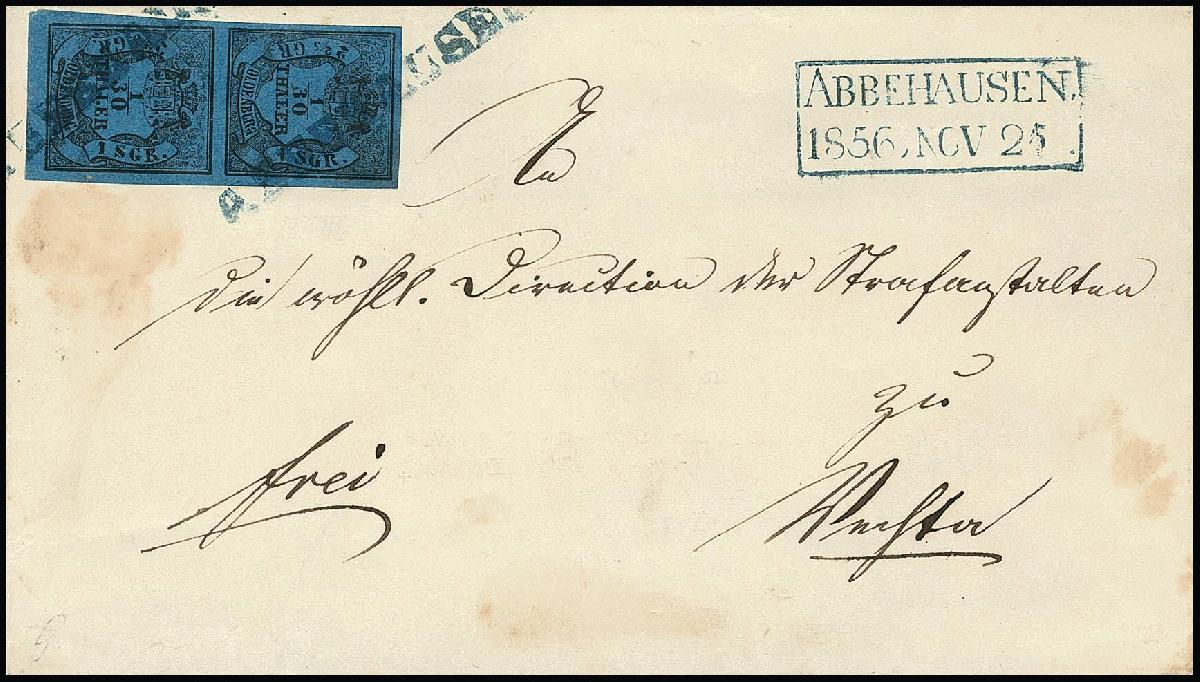 1
30
THALER
1 SGR.
OLDENBURG
1
30
THALER
1 SGR.
OLDENBURG
ABBEHAUSEN.
1856, NOV 24
An
die wöhll. Direction der Strafanstalten
zu
frei
Vechta